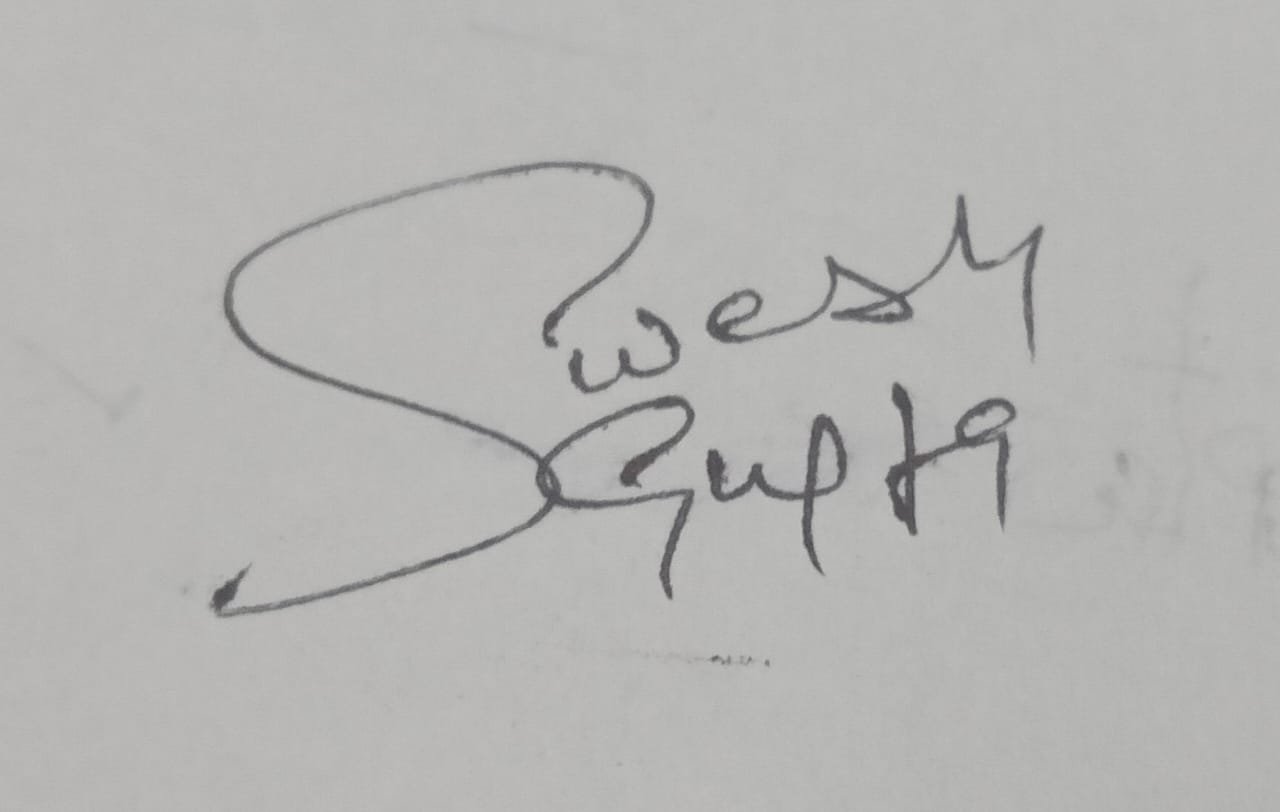 Swesh
Gupta